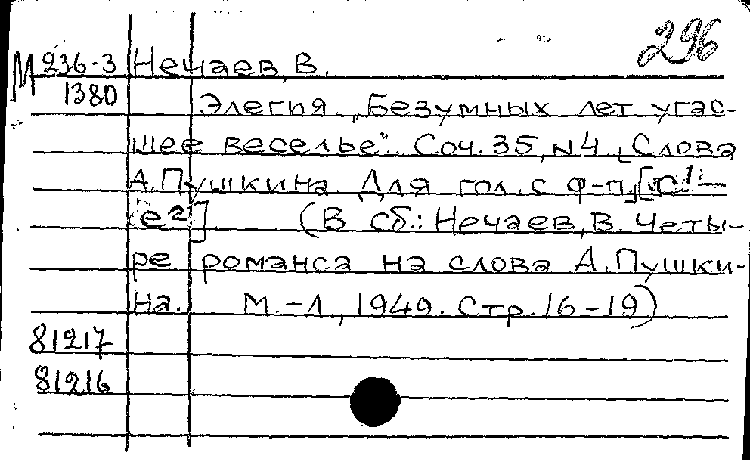 296
М 236-3 Нечаев, В.
1380 Элегия „Безумных лет угас-
шее веселье“. Соч. 35, N4 [Слова
А. Пушкина. Для гол. с ф-п.] [c¹ –
e²] (В сб.: Нечаев, В. Четы-
ре романса на слова А. Пушки-
на. М.-Л, 1949. Стр. 16-19)
81217
81216